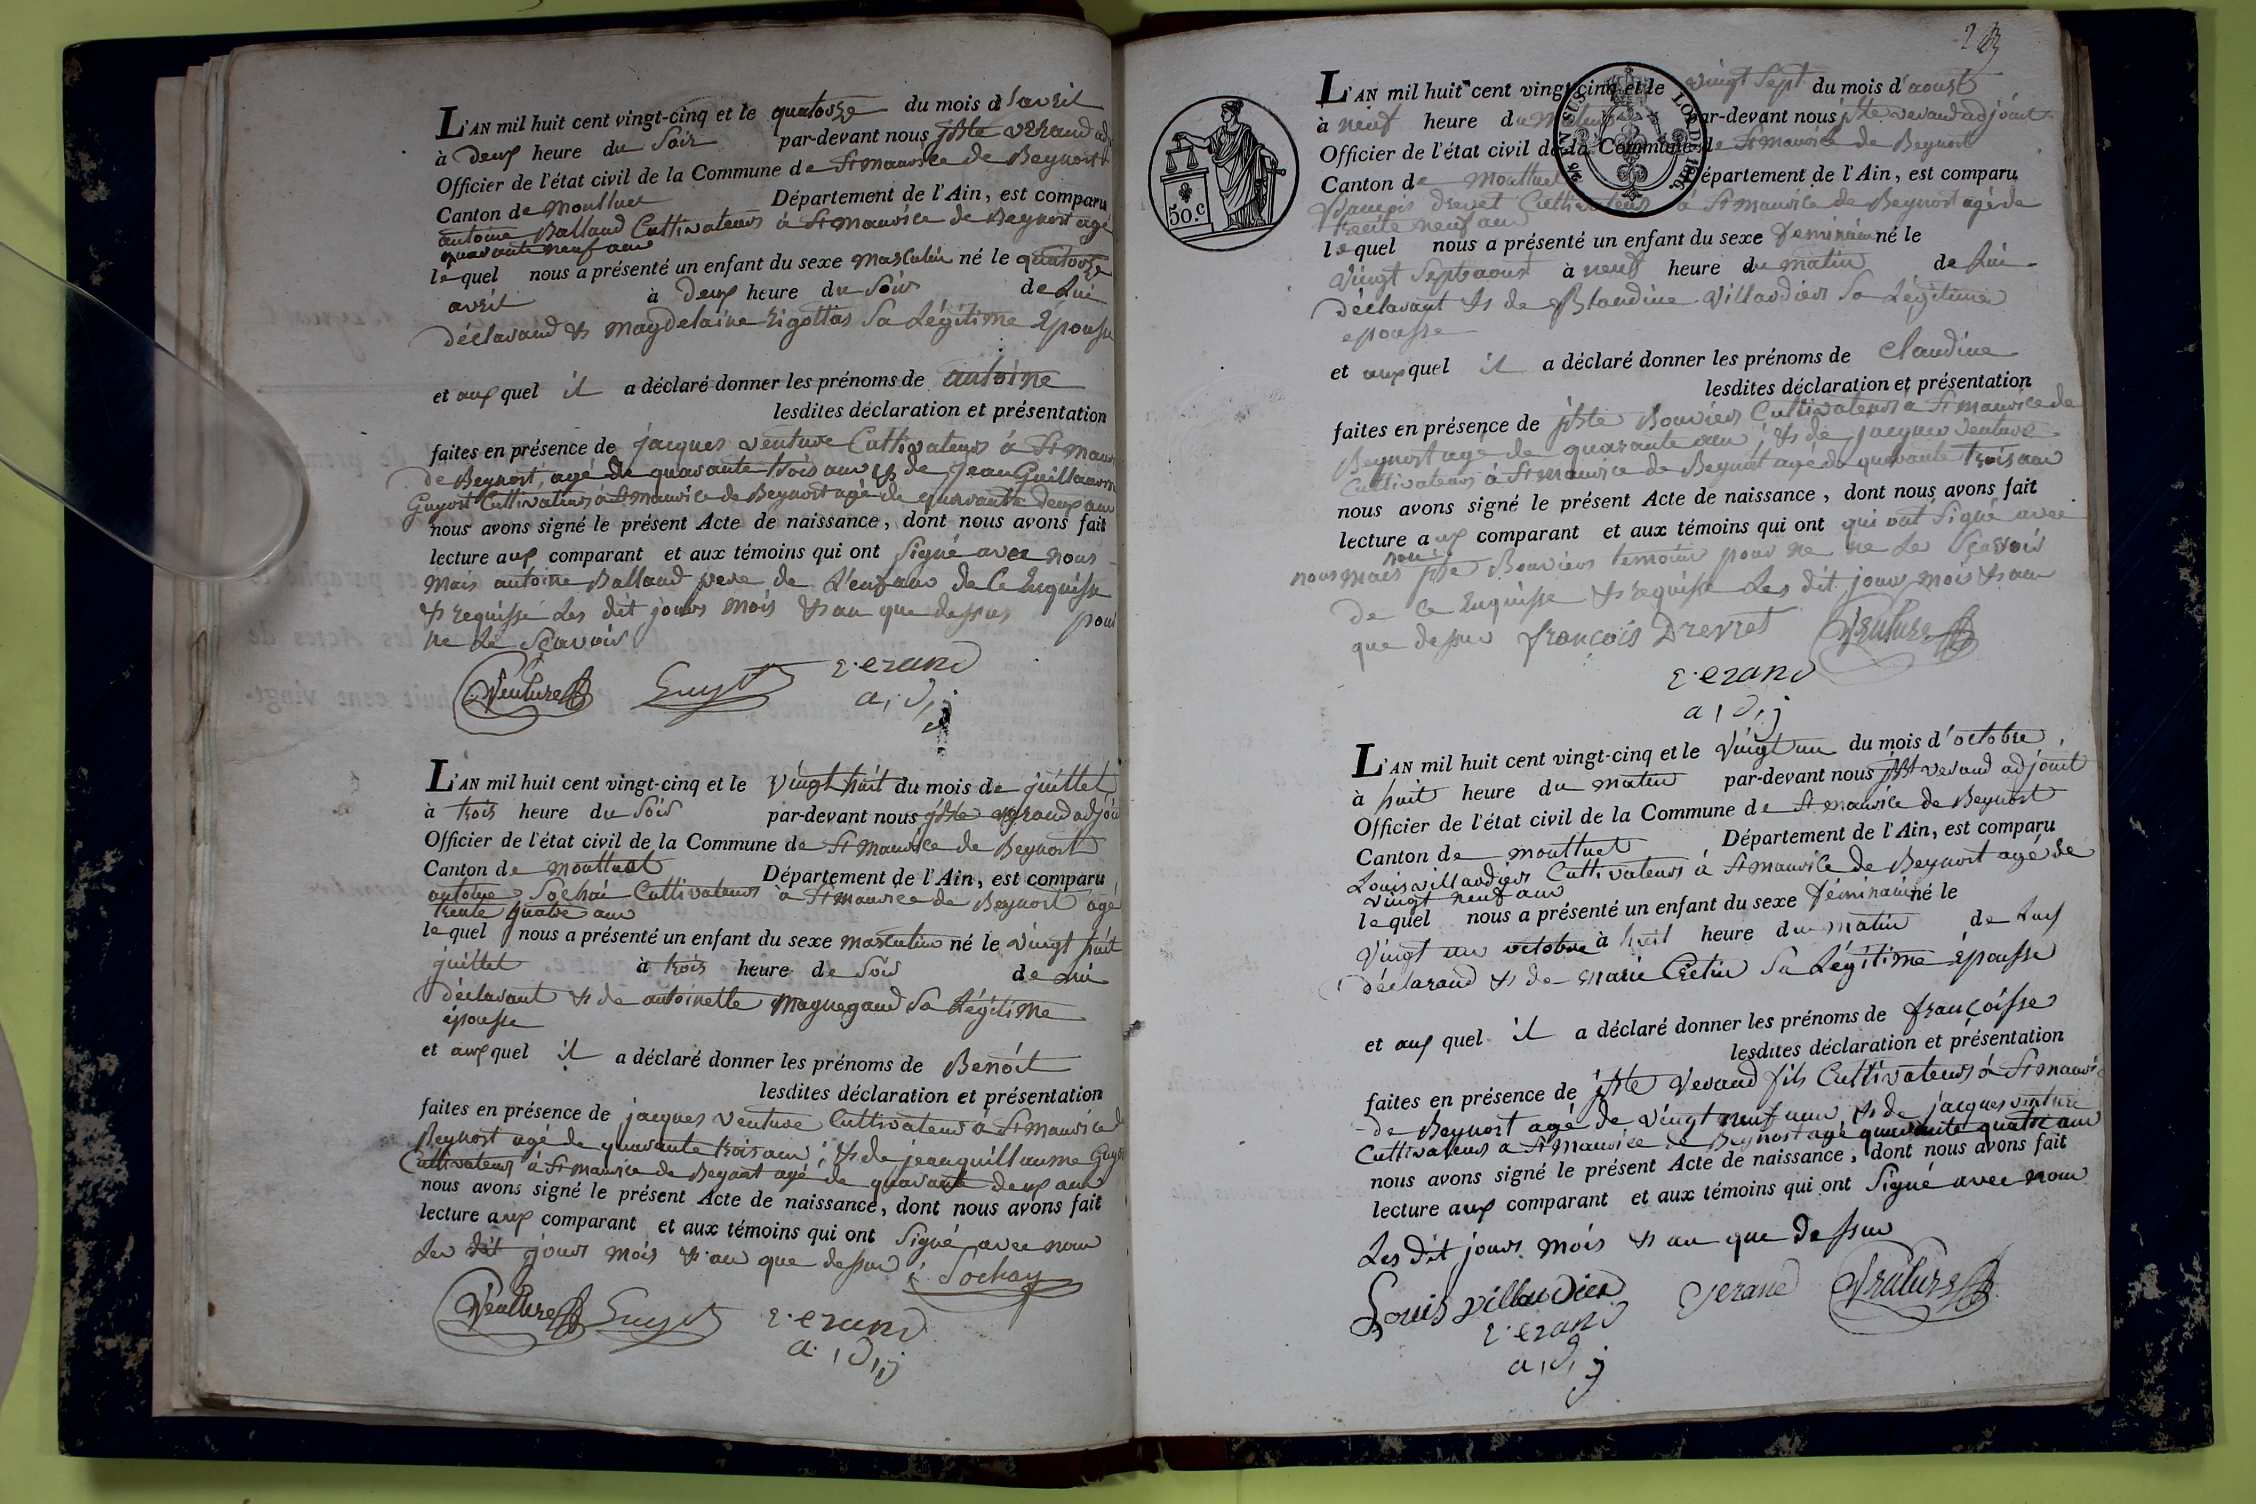 L'AN mil huit cent vingt-cinq et le quatorze du mois d'avril
à deux heure du Soir par-devant nous jBte verand adj
Officier de l'état civil de la Commune de St maurice de Beynost
Canton de montluel Département de l'Ain, est comparu
antoine Balland Cultivateur à St maurice de Beynost agé
quarante neuf ans
lequel nous a présenté un enfant du sexe masculin né le quatorze
avril à deux heure du Soir de Lui
déclarand & magdelaine rigottas Sa Légitime Epousse
et aux quel il a déclaré donner les prénoms de antoine
lesdites déclaration et présentation
faites en présence de jacques venture Cultivateur à St mauri
de Beynost, agé de quarante trois ans & de jean Guillaume
Guyot Cultivateur à St maurice de Beynost agé de quarante deux ans
nous avons signé le présent Acte de naissance, dont nous avons fait
lecture aux comparant et aux témoins qui ont Signé avec nous
mais antoine Balland pere de L'enfans de Ce Enquisse
& requisse Les dit jours mois & an que dessus pour
ne Le Sçavoir
Venture Guyot verand
a,d,j
L'AN mil huit cent vingt-cinq et le vingt huit du mois de juillet
à trois heure du Soir par-devant nous jBte verand adjoi
Officier de l'état civil de la Commune de St maurice de Beynost
Canton de montluel Département de l'Ain, est comparu
antoine Sochai Cultivateur à St maurice de Beynost agé
trente quatre ans
lequel nous a présenté un enfant du sexe masculin né le vingt huit
juillet à trois heure de Soir de Lui
déclarant & de antoinette maguegand Sa Légitime
épousse
et aux quel il a déclaré donner les prénoms de Benoit
lesdites déclaration et présentation
faites en présence de jacques venture Cultivateur à St maurice de
Beynost agé de quarante trois ans ; & de jean guillaume Guyot
Cultivateur à St maurice de Beynost agé de quarante deux ans
nous avons signé le présent Acte de naissance, dont nous avons fait
lecture aux comparant et aux témoins qui ont Signé avec nous
Les dit jours mois & an que dessus Sochay
Venture Guyot verand
a,d,j
23
SANS SUS LOI DE 1816
50.c
L'AN mil huit cent vingt-cinq et le vingt Sept du mois d'aoust
à neuf heure du matin par-devant nous jBte verand adjoint
Officier de l'état civil de la Commune de St maurice de Beynost
Canton de montluel Département de l'Ain, est comparu
françois drevet Cultivateur à St maurice de Beynost agé de
trente neuf ans
lequel nous a présenté un enfant du sexe feminin né le
vingt Sept aoust à neuf heure du matin de Lui
déclarant & de Blandine Villardier Sa Légitime
epousse
et aux quel il a déclaré donner les prénoms de Claudine
lesdites déclaration et présentation
faites en présence de jBte Bouvier Cultivateur à St maurice de
Beynost agé de quarante ans ; & de jacques venture
Cultivateur à St maurice de Beynost agé de quarante trois ans
nous avons signé le présent Acte de naissance, dont nous avons fait
lecture aux comparant et aux témoins qui ont qui ont Signé avec
nous mais non jBte Bouvier temoin pour ne ne Le Sçavoir
de Ce Enquisse & requisse Les dit jours mois & an
que dessus françois Drevret Venture
verand
a,d,j
L'AN mil huit cent vingt-cinq et le vingt un du mois d'octobre,
à huit heure du matin par-devant nous jBte verand adjoint
Officier de l'état civil de la Commune de St maurice de Beynost
Canton de montluel Département de l'Ain, est comparu
Louis villardier Cultivateur à St maurice de Beynost agé de
vingt neuf ans
lequel nous a présenté un enfant du sexe féminin né le
vingt un octobre à huit heure du matin de Luy
déclarand & de marie Cretin Sa Légitime Epousse
et aux quel il a déclaré donner les prénoms de françoisse
lesdites déclaration et présentation
faites en présence de jBte Verand fils Cultivateur à St mauric
de Beynost agé de vingt neuf ans & de jacques venture
Cultivateur à St maurice de Beynost agé quarante quatre ans
nous avons signé le présent Acte de naissance, dont nous avons fait
lecture aux comparant et aux témoins qui ont Signé avec nous
Les dit jours mois & an que dessus
Louis villardier Verand Venture
verand
a,d,j